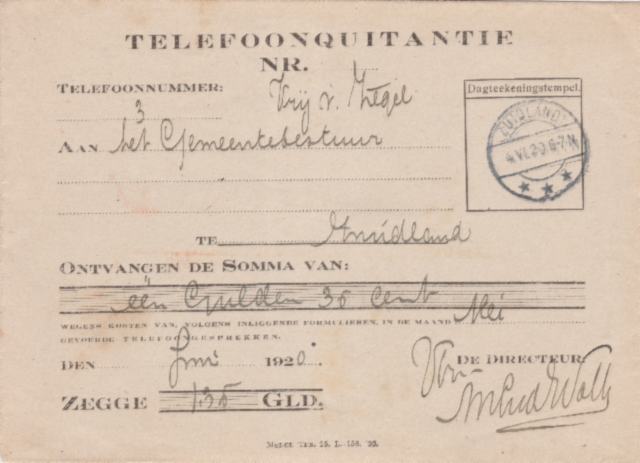 TELEFOONQUITANTIE
NR.
TELEFOONNUMMER: Vrij v. Zegel
3
AAN het Gemeentebestuur
Dagteekeningstempel.
ZUIDLAND
4.VI.20.6-7.N
TE Zuidland
ONTVANGEN DE SOMMA VAN:
één Gulden 35 cent
WEGENS KOSTEN VAN, VOLGENS INLIGGENDE FORMULIEREN, IN DE MAAND Mei
GEVOERDE TELEFOONGESPREKKEN.
DEN Juni 1920.
DE DIRECTEUR:
ZEGGE 1.35 GLD.